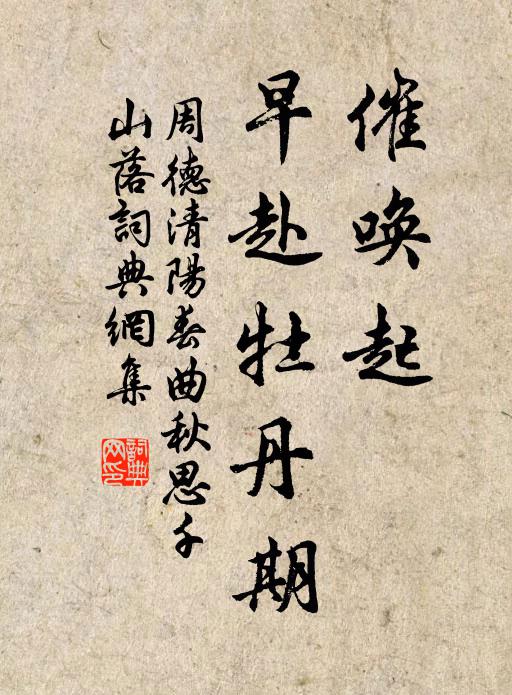 催唤起
早赴牡丹期
周德清陽春曲秋思千
山落詞典網集
詞典
网印